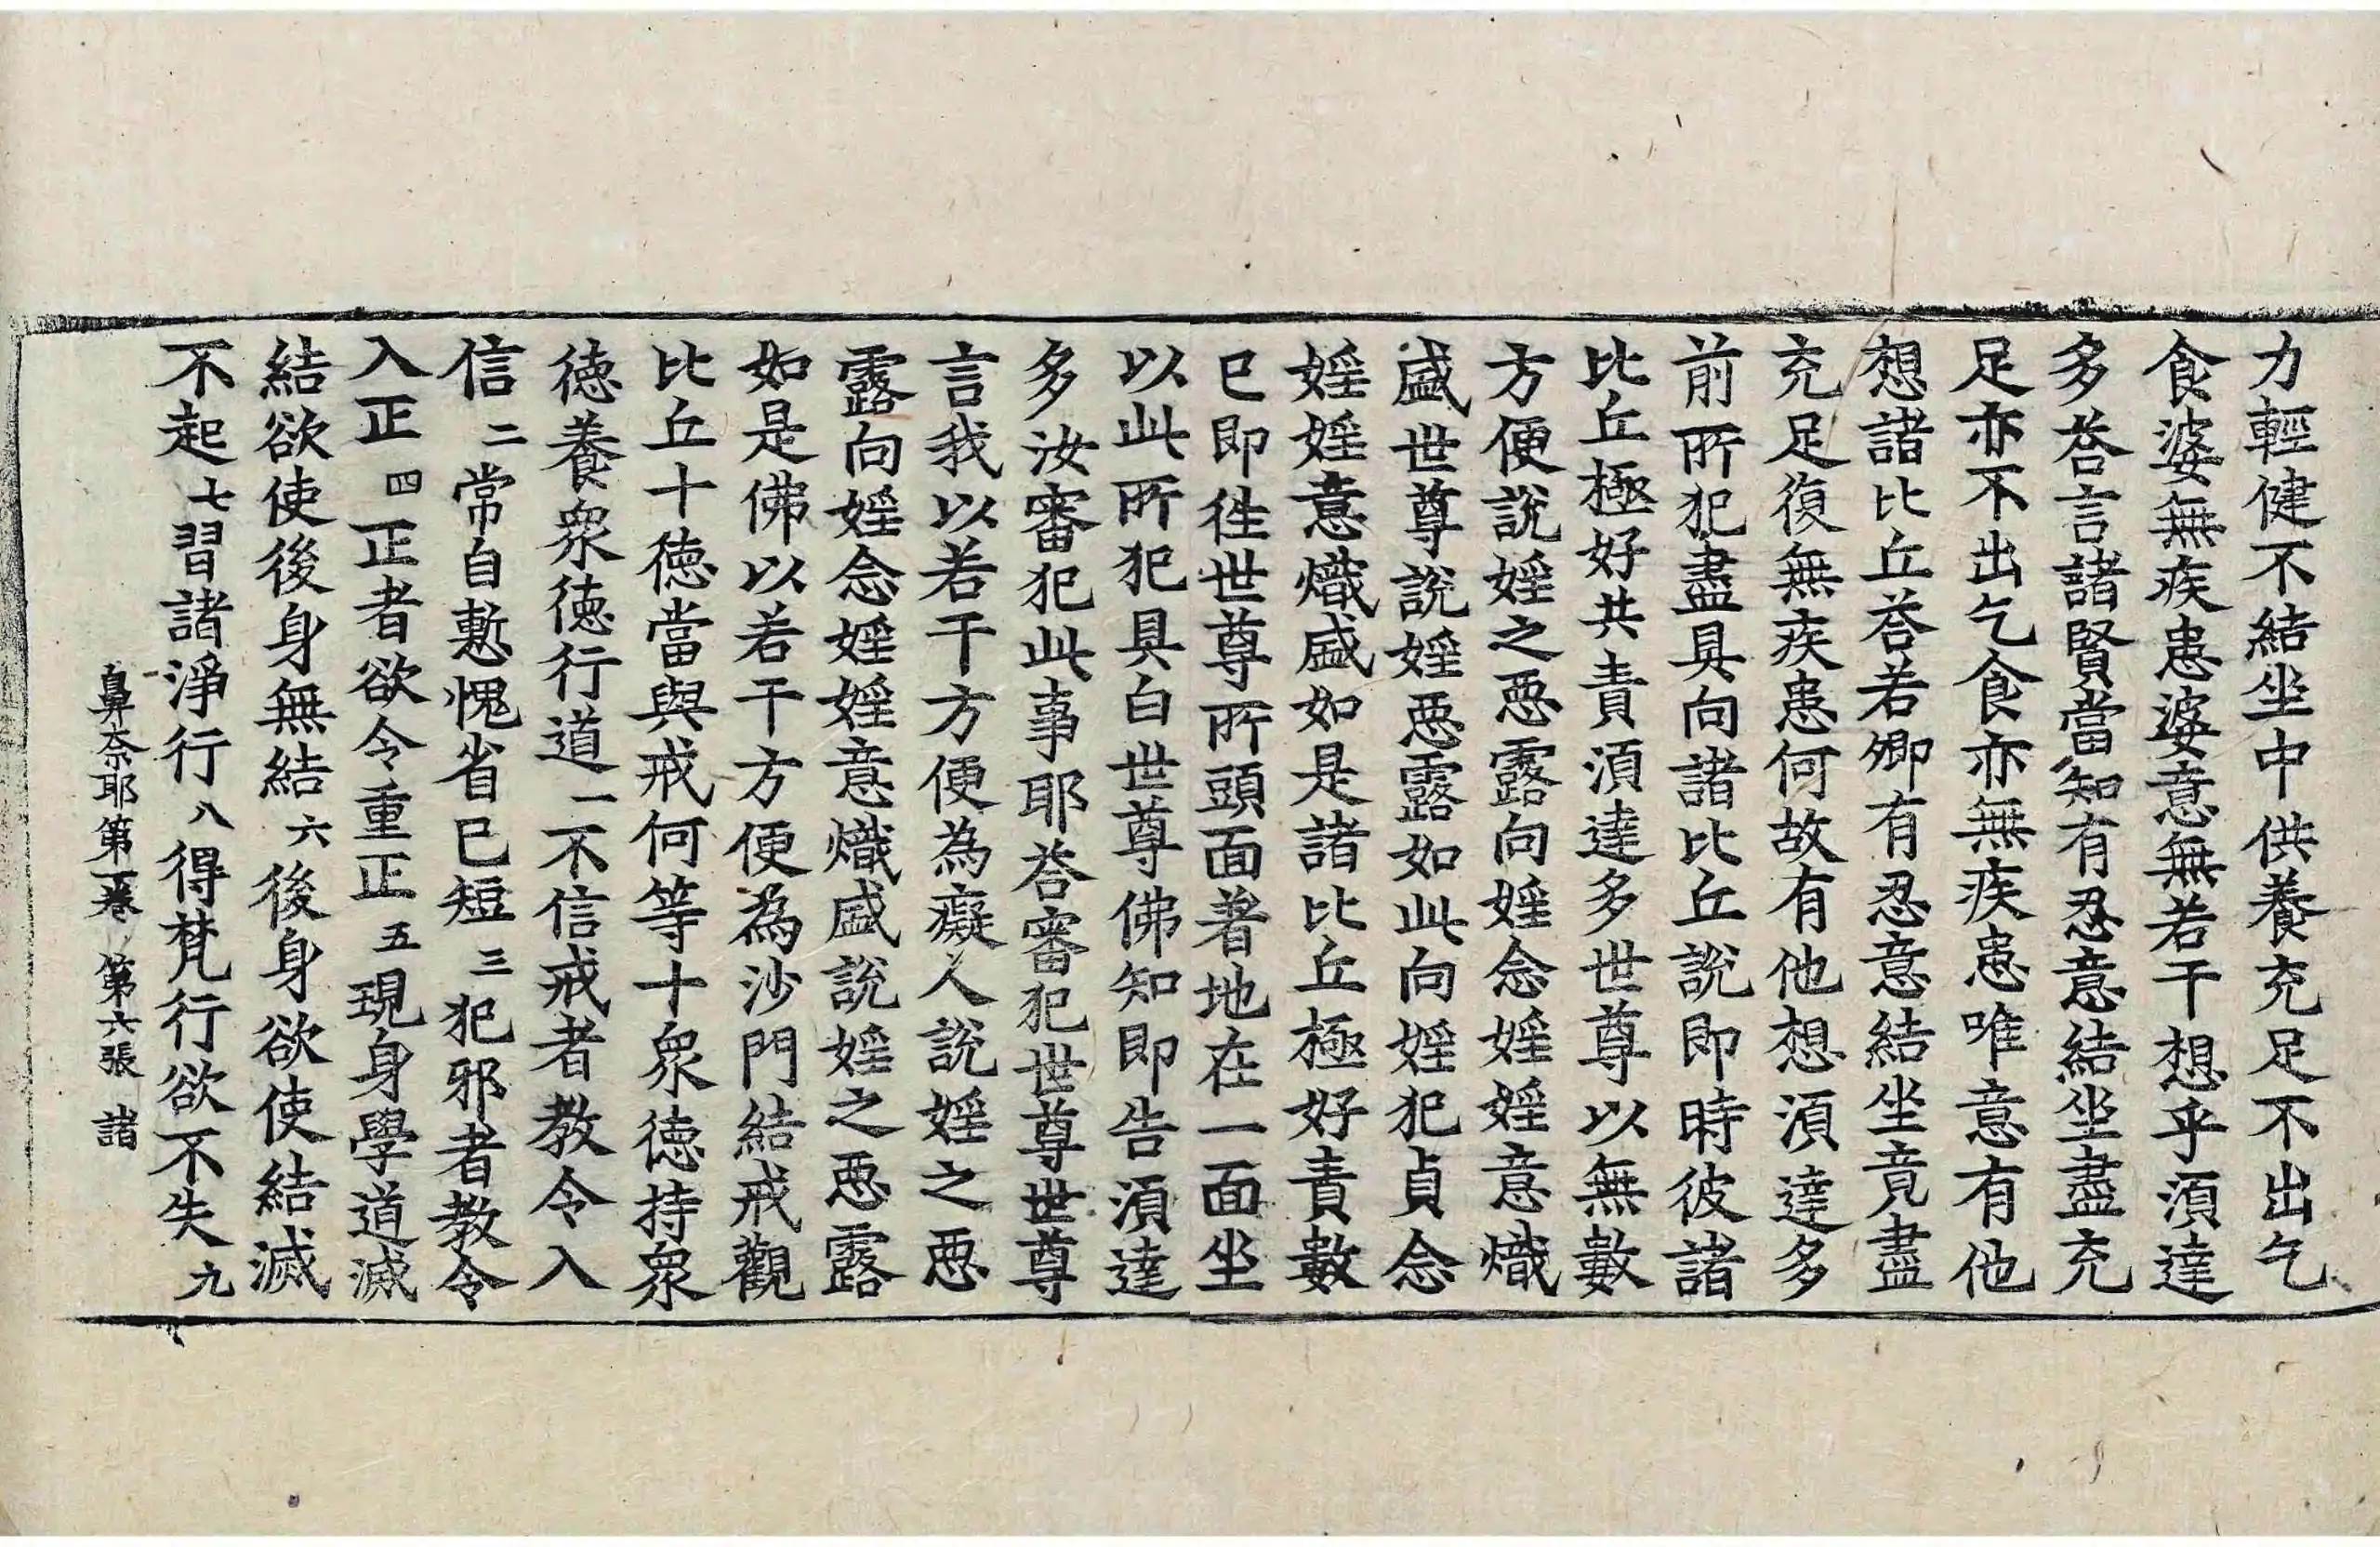 力輕健不結坐中供養充足不出乞
食婆無疾患婆意無若干想乎湏達
多荅言諸賢當知有忍意結坐盡充
足亦不出乞食亦無疾患唯意有他
想諸比丘荅若卿有忍意結坐竟盡
充足復無疾患何故有他想湏達多
前所犯盡具向諸比丘說即時彼諸
比丘極好共責湏達多世尊以無數
方便說婬之惡露向婬念婬婬意熾
盛世尊說婬惡露如此向婬犯貞念
婬婬意熾盛如是諸比丘極好責數
已即往世尊所頭面著地在一面坐
以此所犯具白世尊佛知即告湏達
多汝審犯此事耶荅審犯世尊世尊
言我以若干方便為癡人說婬之惡
露向婬念婬婬意熾盛說婬之惡露
如是佛以若干方便為沙門結戒觀
比丘十德當與戒何等十眾德持眾
德養眾德行道一不信戒者教令入
信二常自慙愧省已短三犯邪者教令
入正四正者欲令重正五現身學道滅
結欲使後身無結六後身欲使結滅
不起七習諸淨行八得梵行欲不失九
鼻奈耶第一卷 第六張 諸